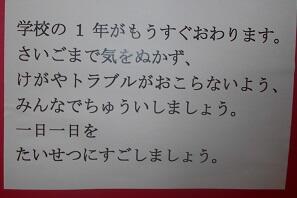 学校の1年がもうすぐおわります。
さいごまで気をぬかず、
けがやトラブルがおこらないよう、
みんなでちゅういしましょう。
一日一日を
たいせつにすごしましょう。